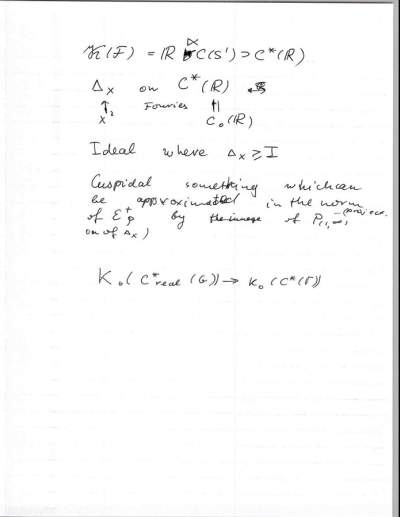 K(F) = R ⋊ C(S¹) ⊃ C*(R)
Δx on C*(R)
x² Fourier C₀(R)
Ideal where Δx ⩾ I
Cuspidal something which can
be approximated in the norm
of by the image of P (project.
on of Δx)
K₀(C*real(G)) → K₀(C*(Γ))